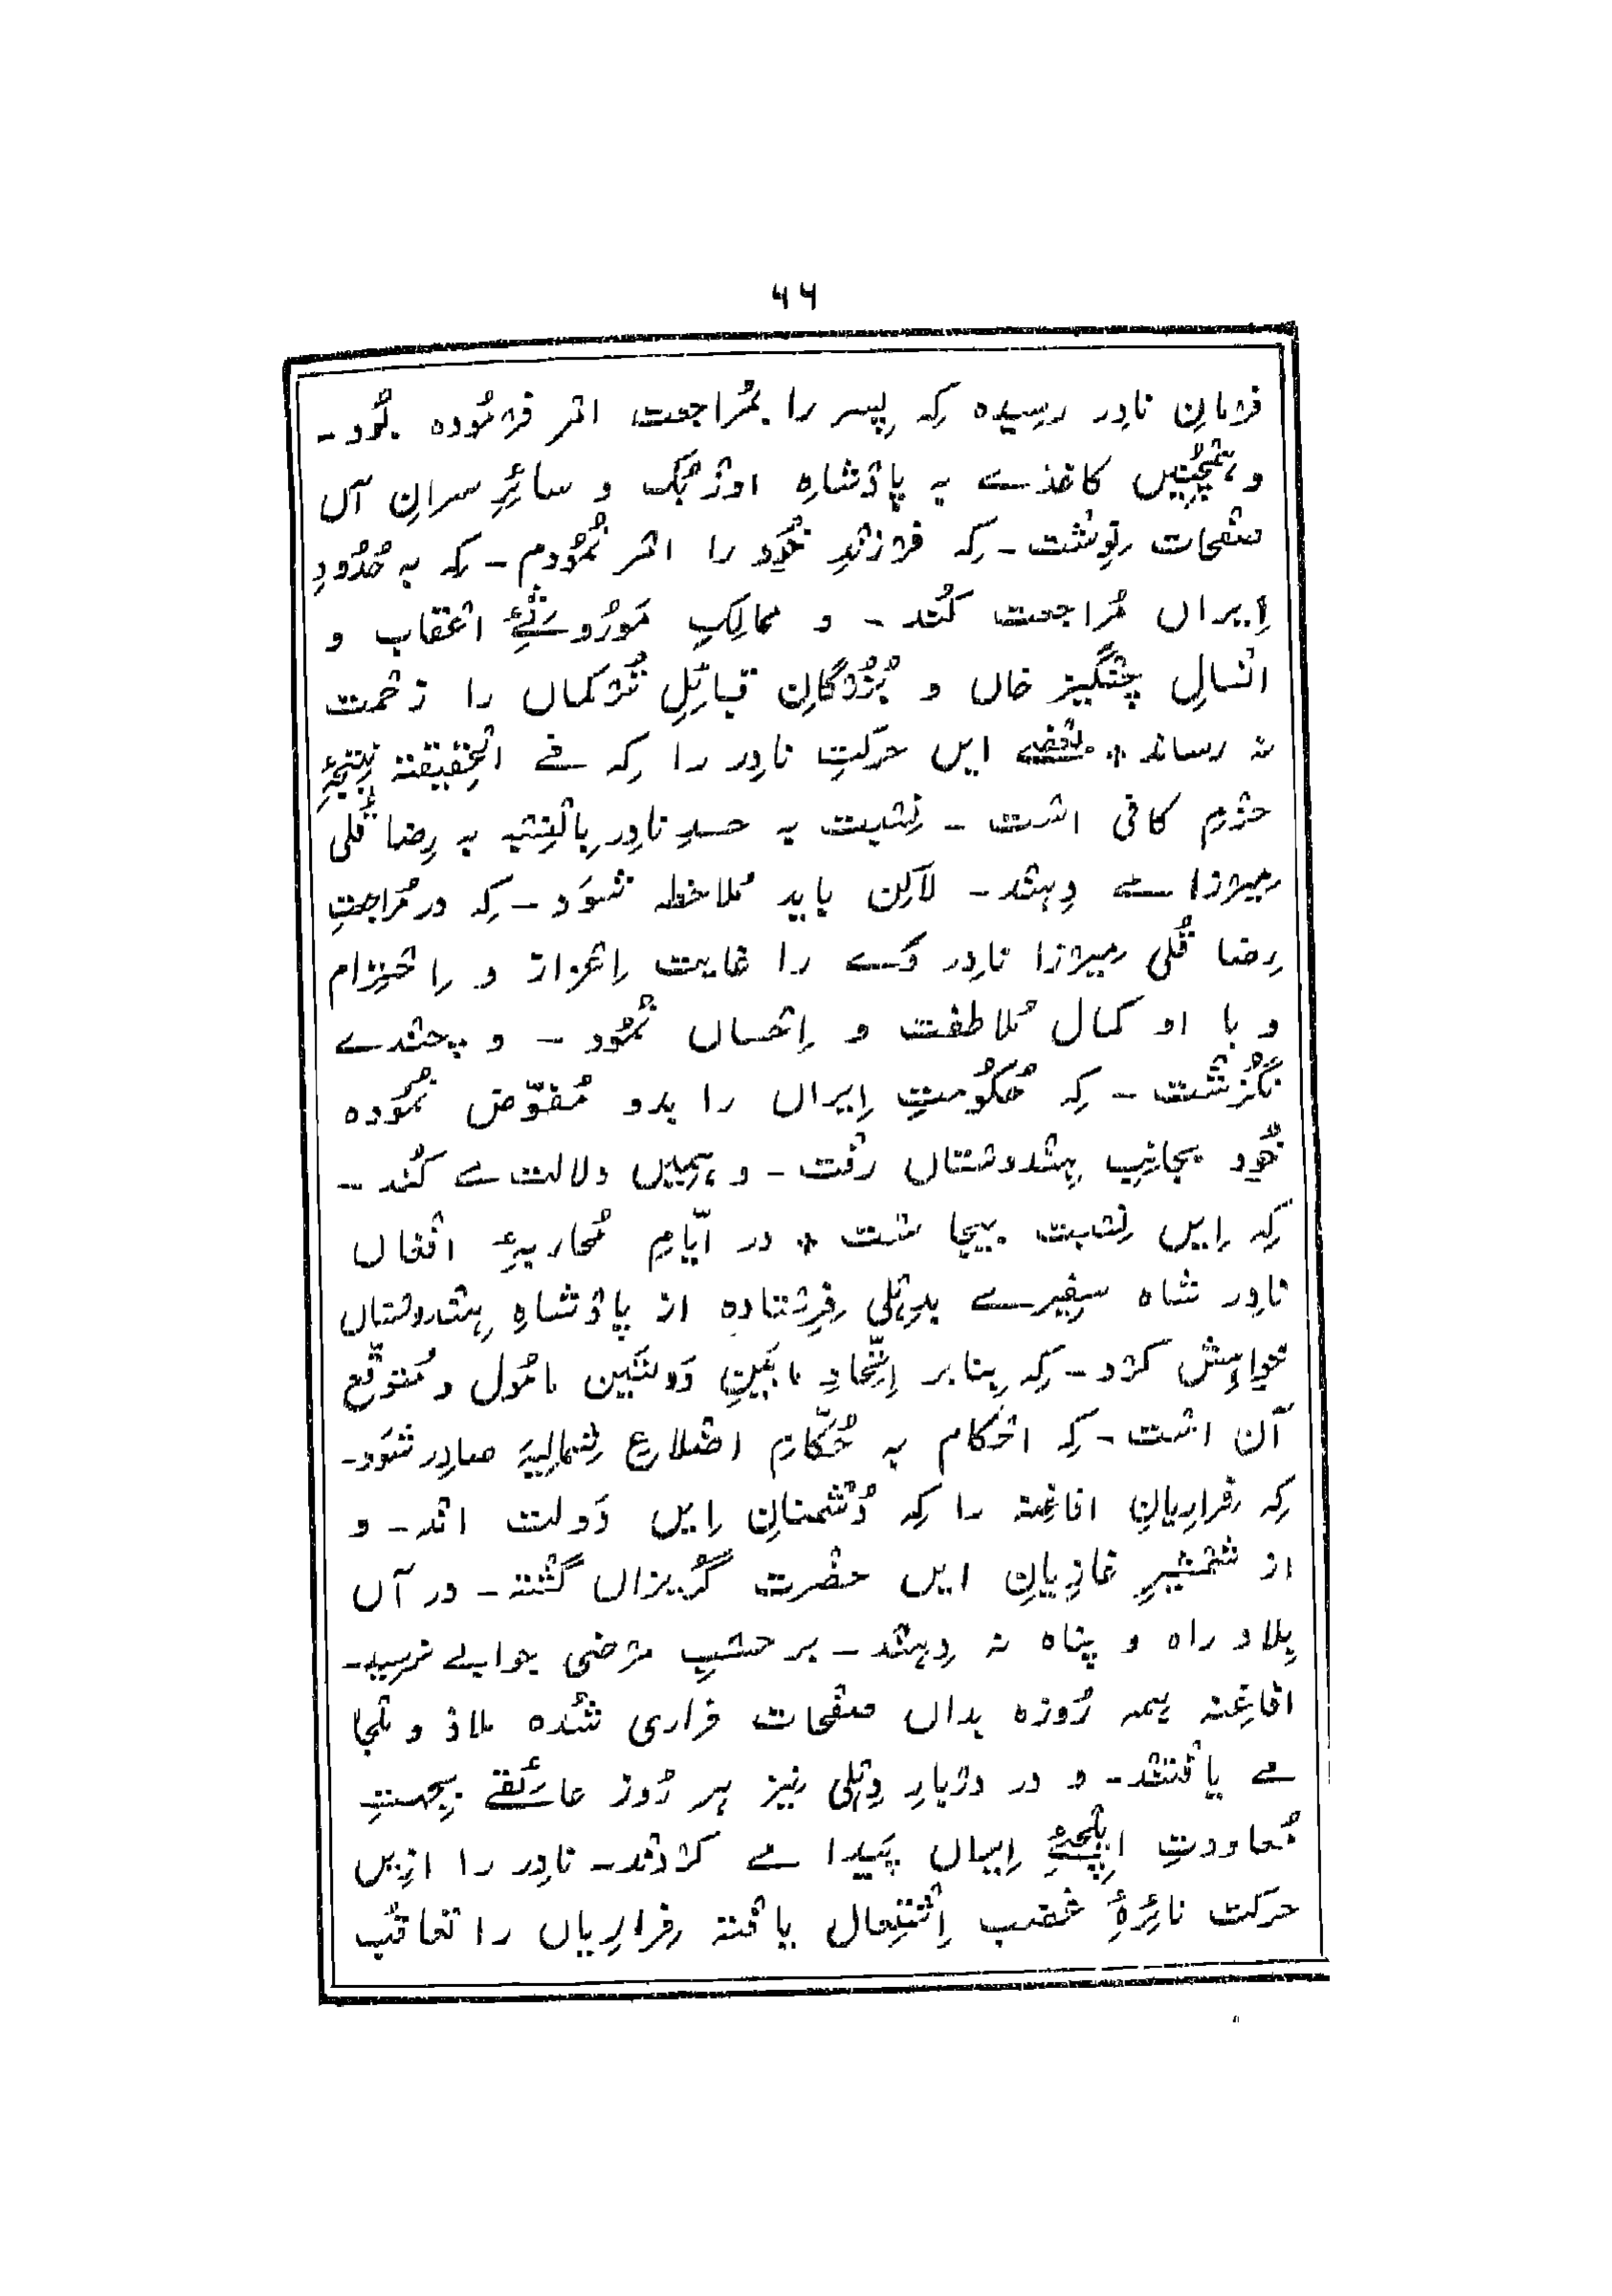 ۶۶
فرمانِ نادِر رسِیدہ کہ پِسر را بمُراجعت امر فرمُودہ بُود -
و ہمچُنِیں کاغذے بہ پادشاہِ اوزبک و سائِرِ سرانِ آں
صفحات نِوِشت - کِہ فرزندِ خُود را امر نمُودم - کِہ بہ حُدُودِ
اِیراں مُراجعت کُند - و ممالِکِ مَورُوثۂِ اعقاب و
انسالِ چنگیز خاں و بُزُرگانِ قبائِلِ تُرکماں را زحمت
نہ رساند * بعضے ایں حرکتِ نادِر را کِہ فے الحقِیقتہ نتِیجۂِ
حزم کافی است - نِسبت بہ حسدِ نادِر بِالنِسبہ بہ رِضا قُلی
مِیرزا مے دِہند - لاکِن باید مُلاحظہ شوَد - کِہ در مُراجعتِ
رِضا قُلی مِیرزا نادِر وَے را غایت اِعزاز و اِحتِرام
و با او کمال مُلاطفت و اِحساں نمُود - و چندے
نگُزشت - کِہ حُکُومتِ اِیراں را بدو مُفوّض نمُودہ
خُود بجانِبِ ہِندوستاں رفت - و ہمِیں دلالت مے کُند -
کِہ اِیں نِسبت بیجا ست * در ایّامِ مُحاربۂِ افغاں
نادِر شاہ سفِیرے بدِہلی فِرِستادہ از پادشاہِ ہِندوستاں
خواہِش کرد - کِہ بِنا بر اِتّحادِ مابَینِ دَولتَین مامُول و مُتوقّع
آن است - کِہ احکام بہ حُکّامِ اضلاعِ شِمالِیہ صادِر شوَد -
کِہ فِرارِیانِ افاغِنہ را کِہ دُشمنانِ اِیں دَولت اند - و
از شمشیرِ غازِیانِ ایں حضرت گُریزاں گشتہ - در آں
بِلاد راہ و پناہ نہ دِہند - بر حسبِ مرضی جوابے نرسِید -
افاغِنہ ہمہ رُوزہ بداں صفحات فراری شُدہ ملاذ و ملجا
مے یافتند - و در دربارِ دِہلی نِیز ہر رُوز عائقے بجِہتِ
مُعاودتِ ایلچۂِ اِیراں پَیدا مے کردند - نادِر را ازِیں
حرکت نائِرۂِ غضب اِشتِعال یافتہ فِرارِیاں را تعاقُب